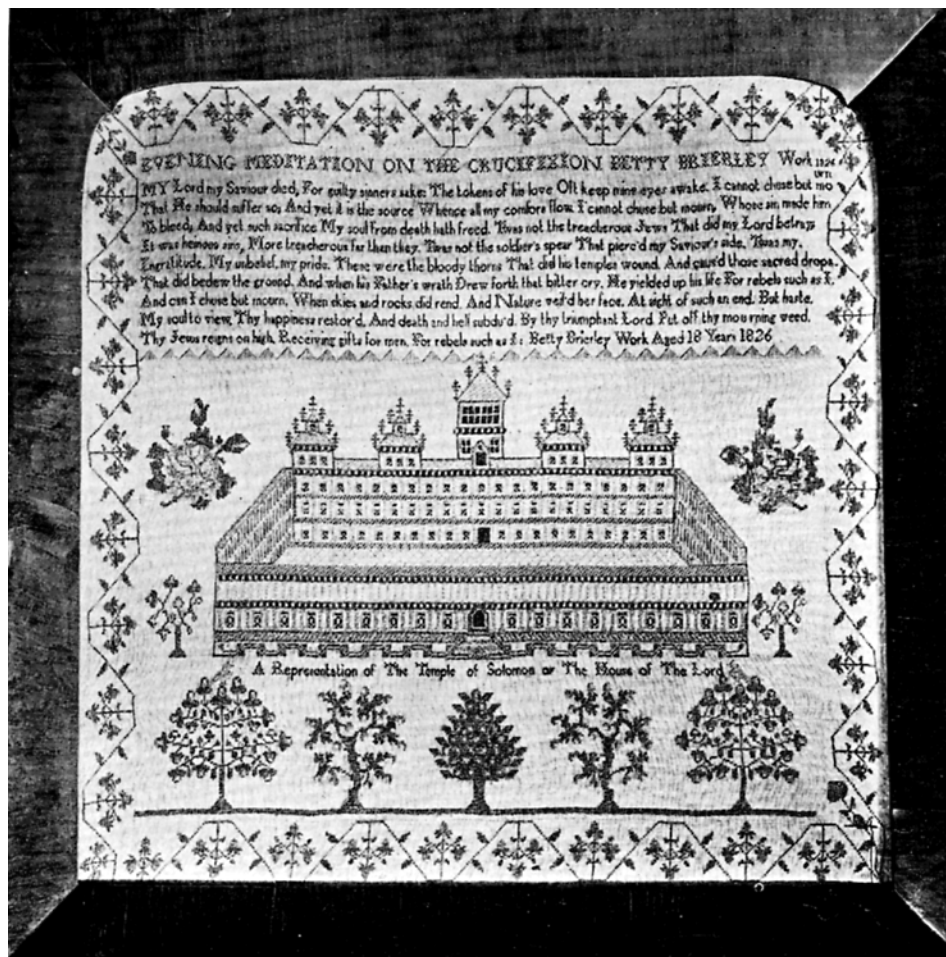 EVENING MEDITATION ON THE CRUCIFIXION BETTY BRIERLEY Work
MY Lord my Saviour died, For guilty sinners sake; The tokens of his love Oft keep mine eyes awake. I cannot chuse but mo
urn
That He should suffer so; And yet it is the source Whence all my comforts flow. I cannot chuse but mourn, Whose sin made him
To bleed; And yet such sacrifice My soul from death hath freed. Twas not the treacherous Jews That did my Lord betray;
It was heinous sins, More treacherous far than they. Twas not the soldier's spear That pierc'd my Saviour's side, Twas my
Ingratitude, My unbelief, my pride. These were the bloody thorns That did his temples wound, And caus'd those sacred drops
That did bedew the ground. And when his Father's wrath Drew forth that bitter cry, He yielded up his life For rebels such as I.
And can I chuse but mourn, When skies and rocks did rend, And Nature veil'd her face, At sight of such an end. But haste,
My soul to view, Thy happiness restor'd, And death and hell subdu'd, By thy triumphant Lord Put off thy mourning weed,
Thy Jesus reigns on high, Receiving gifts for men, For rebels such as I: Betty Brierley Work Aged 18 Years 1826
A Representation of The Temple of Solomon or The House of The Lord